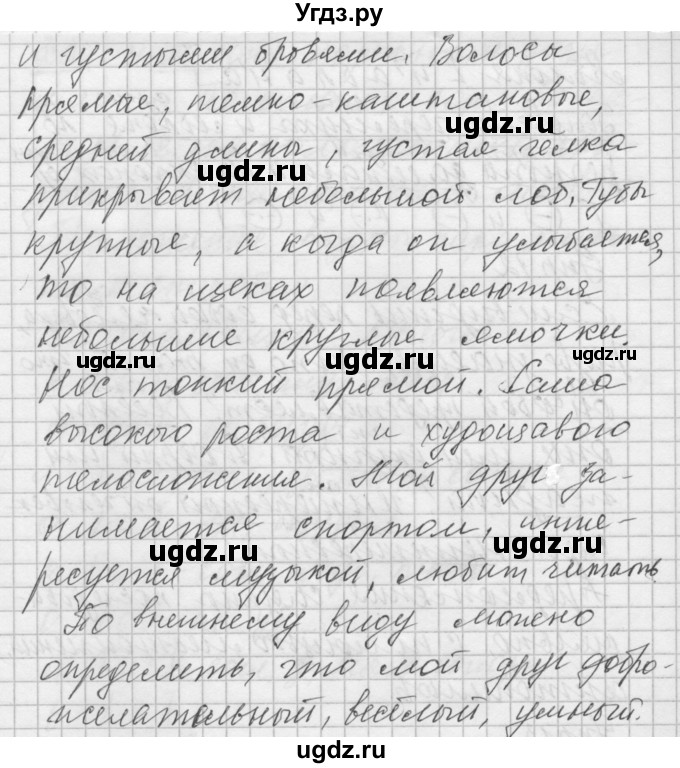 Угдз.ру
и густыми бровями. Волосы
прямые, темно-каштановые,
ugdz.ru
средней длины, густая чёлка
ugdz.ru
прикрывает небольшой лоб. Губы
крупные, а когда он улыбается,
ugdz.ru
то на щеках появляются
небольшие круглые ямочки.
ugdz.ru ugdz.ru ugdz.ru
Нос тонкий прямой. Саша
высокого роста и худощавого
ugdz.ru
телосложения. Мой друг за-
нимается спортом, инте-
ugdz.ru
ресуется музыкой, любит читать.
ugdz.ru
По внешнему виду можно
определить, что мой друг добро-
ugdz.ru
желательный, весёлый, умный.
ugdz.ru